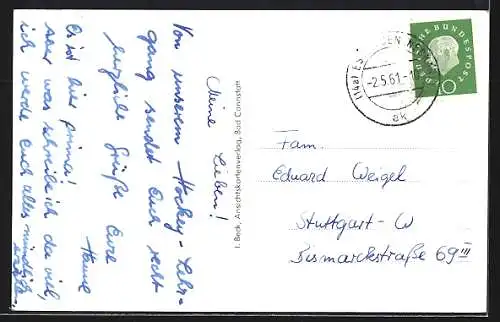 Meine Lieben!
Von unserem Hockey-Lehr-
gang sendet Euch recht
herzliche Grüße Eure
Hanne
Es ist hier prima!
Aber was schreibe ich da viel,
ich werde Euch alles mündlich
erzählen.
I. Beck, Ansichtskartenverlag, Bad Cannstatt
DEUTSCHE BUNDESPOST
10
(14a) ES
EN
-2.5.61.-1
ak
Fam.
Eduard Weigel
Stuttgart-W
Bismarckstraße 69 III